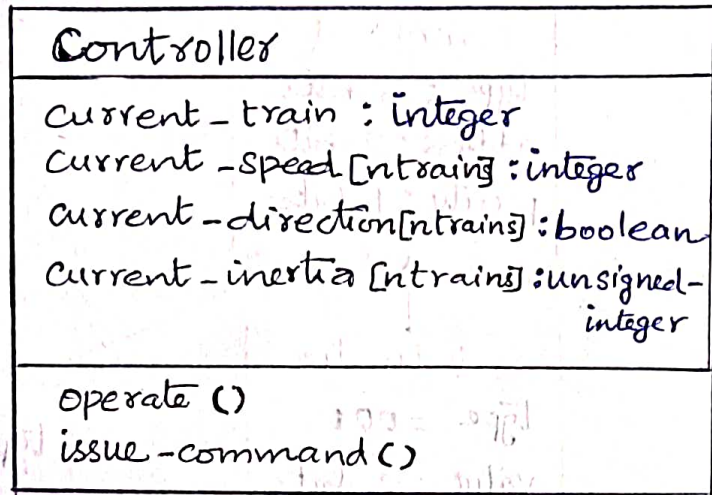 Controller
current-train : integer
current-speed[ntrains] : integer
current-direction[ntrains] : boolean
current-inertia [ntrains] : unsigned-
integer
operate ()
issue-command ()